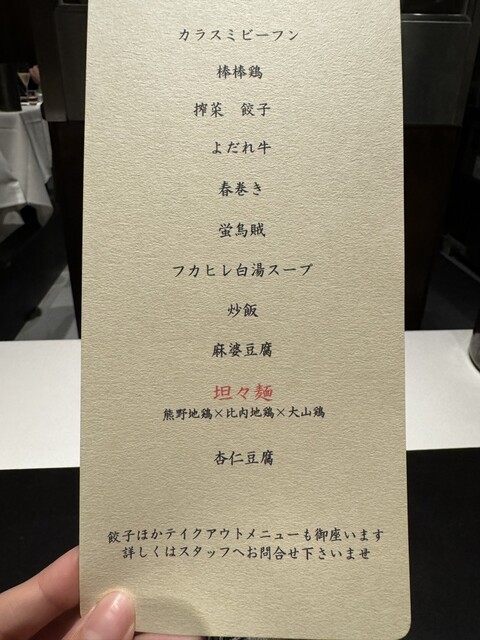 カラスミビーフン
棒棒鶏
搾菜　餃子
よだれ牛
春巻き
蛍烏賊
フカヒレ白湯スープ
炒飯
麻婆豆腐
坦々麺
熊野地鶏×比内地鶏×大山鶏
杏仁豆腐
餃子ほかテイクアウトメニューも御座います
詳しくはスタッフへお問合せ下さいませ